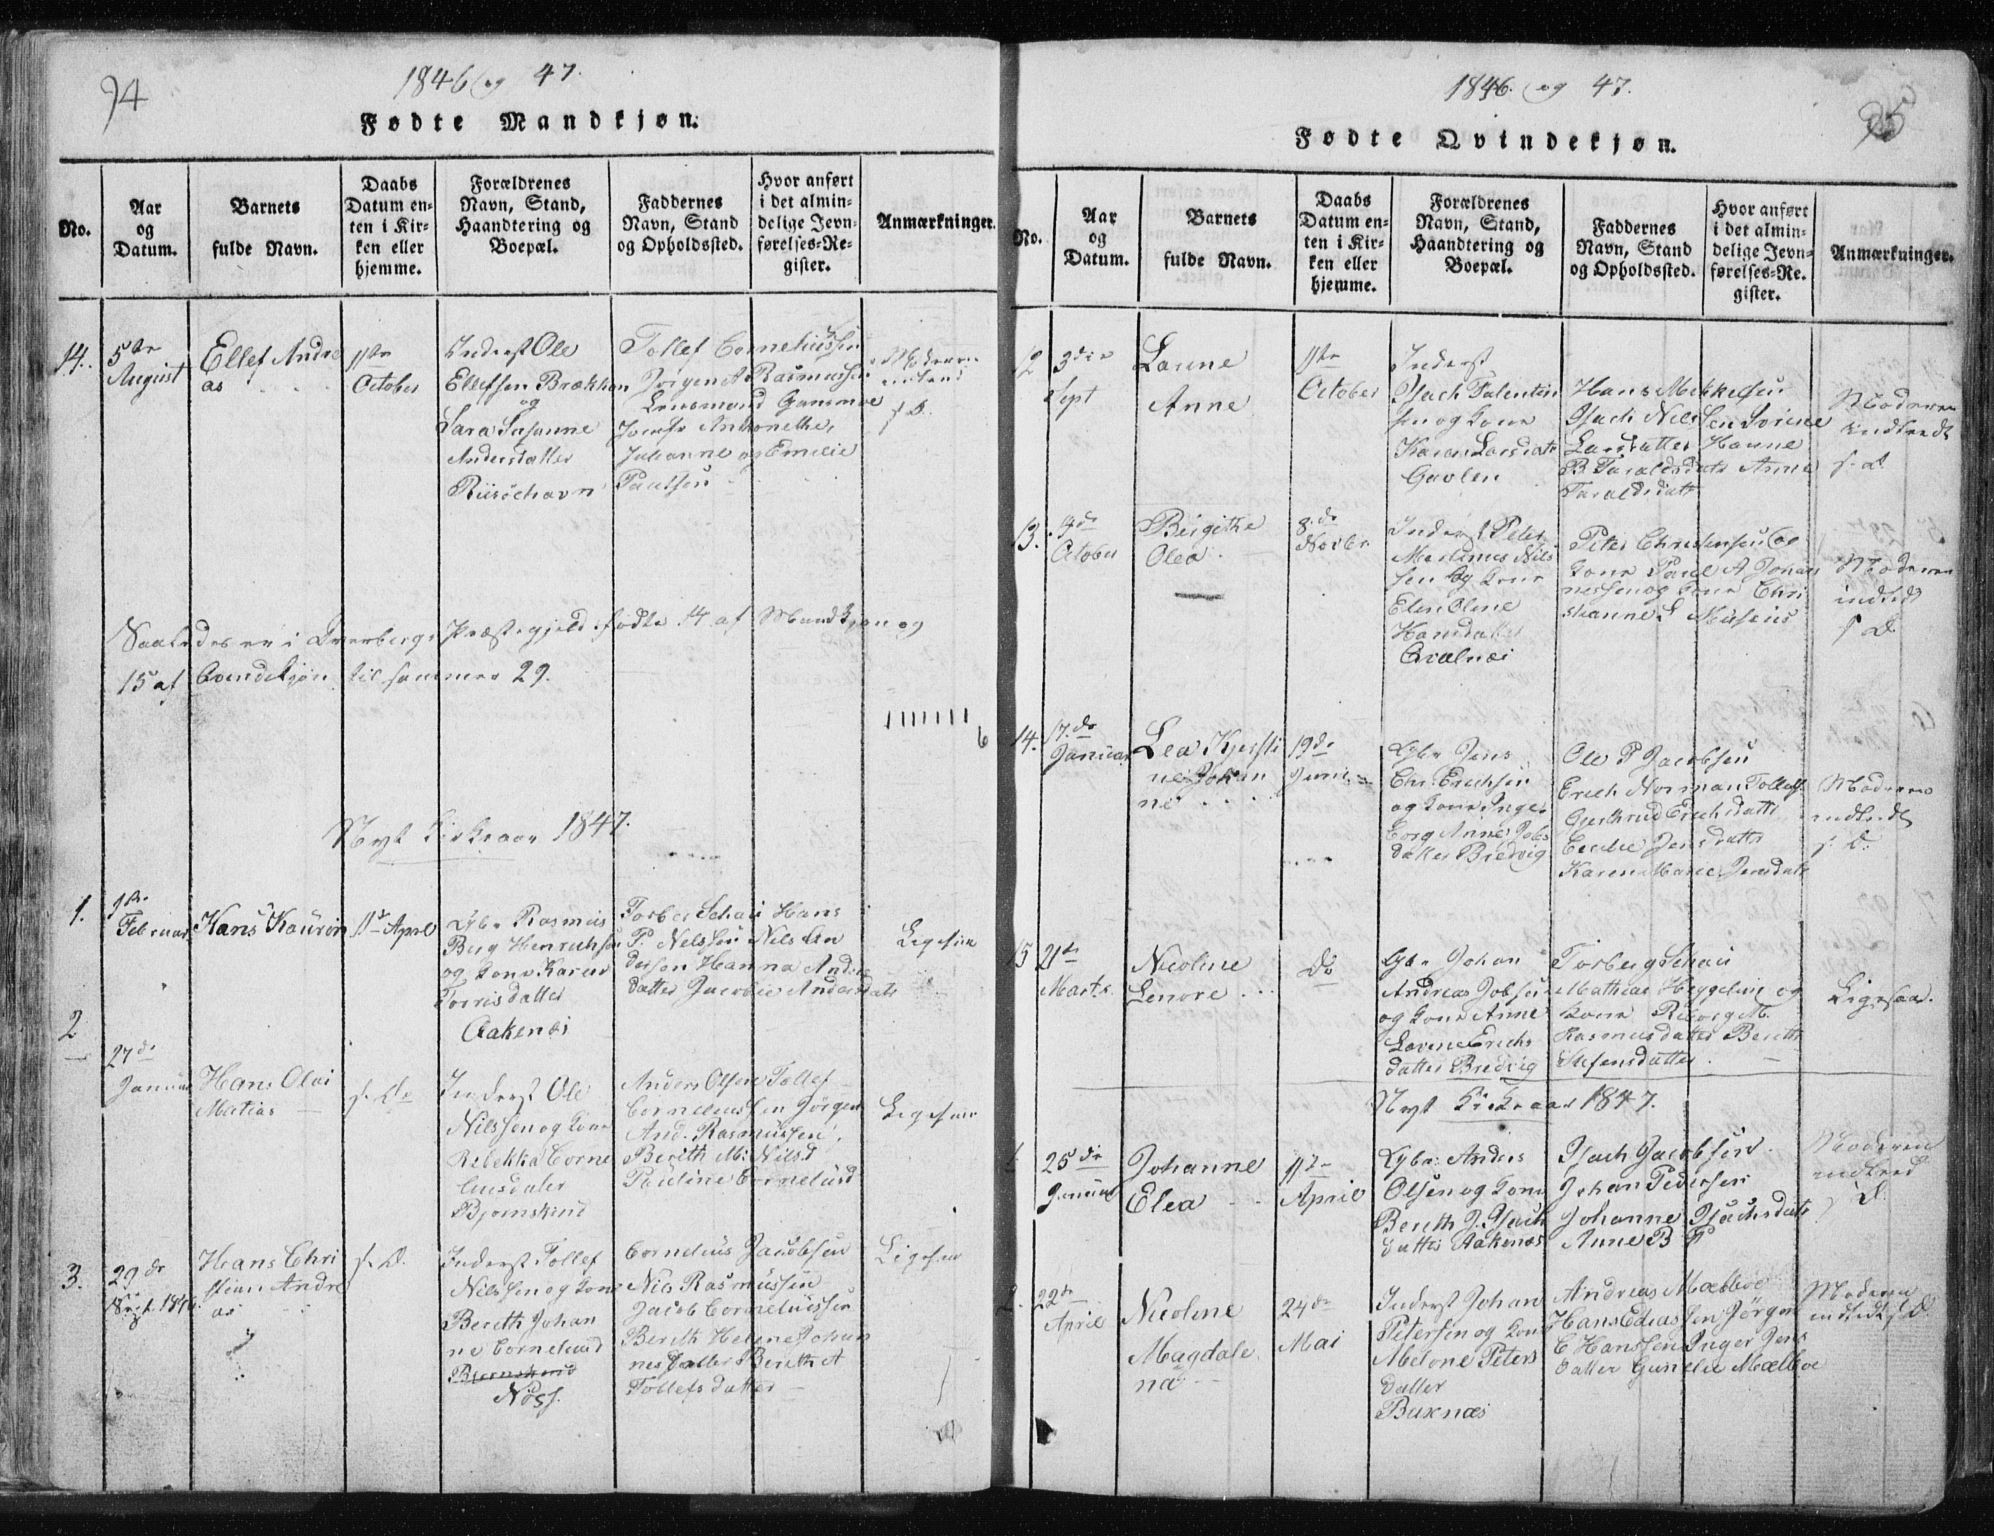 94
1846 og 47.
Fødte Mandkjøn.
No.
Aar og Datum.
Barnets fulde Navn.
Daabs Datum enten i Kirken eller hjemme.
Forældrenes Navn, Stand, Haandtering og Boepæl.
Faddernes Navn, Stand og Opholdssted.
Hvor anført i det almindelige Jevnførelses-Register.
Anmærkninger.
14.
5te
August
Ellef Andre
as
11te
October
Inderst Ole
Ellefsen Brækhan
og
Sara Susanne
Andersdatter
Riisöehavn
Tollef Corneliussen
Jörgen A Rasmussen
Lensmand
Antonette,
Johanne og Emilie
Paulsen
Moderen
s. D.
Saaledes er i Præstegjeld fødte 14 af Mandkjøn og
15 af Qvindekjøn til sammen 29.
6
Nyt Kirkeaar 1847.
1.
Februar
Hans Kaurin
11te April
Lybr Rasmus
Berg Henrichsen
og Kone Karen
Torrisdatter
Aakenæs
Torber Schau Hans
P. Nelssen Nils An
dersen Hanna Anders
datter Jacobie Andersdatt
Ligesaa
2
27de
Januar
Hans Olai
Matias
s. D.
Inderst Ole
Nilssen og Kone
Rebekka Corne
liusdatter
Bjørnskind
Anders Olsen Tollef
Corneliussen Jörgen
And. Rasmussen,
Berith M. Nilsd
Pauline Corneliusd
Ligesaa
3.
29de
Sept. 1846
Hans Chri
stian Andre
as
s. D.
Inderst Tollef
Nilssen og Kone
Berith Johan
ne Corneliusd
Bjørnskind
Nöss.
Cornelius Jacobsen
Nils Rasmussen
Jacob Corneliussen
Berith Helene Johan
nesdatter Berith A
Tollefsdatter
Ligesaa
95
1846. og 47.
Fødte Qvindekjøn.
No.
Aar og Datum.
Barnets fulde Navn.
Daabs Datum enten i Kirken eller hjemme.
Forældrenes Navn, Stand, Haandtering og Boepæl.
Faddernes Navn, Stand og Opholdssted.
Hvor anført i det almindelige Jevnførelses-Register.
Anmærkninger.
12
3die
Sept
Anne
11te
October
Inderst
Isach Falentin
sen og Kone
Karen Larsdatt
Gavlen
Hans Mikkelsen
Isach Nilssen Sörine
Larsdatter Hanne
B Taraldsdatt Anne
Taraldsdatt
Moderen
indledt
s. D
13.
October
Birgithe
Olea
8de
Novbr
Inderst Peter
Martinus Nils
sen og Kone
Elen Oline
Hansdatter
Qvalnæs
Peter Christensen og
Kone Paul A Johan
nessen og Kone Chri
stianne S Musæus
Moderen
indledt
s D.
14.
17de
Januar
Lea Kjersti
ne Johan
ne
19de
Juni
Lybr Jens
Chr. Erichsen
og Kone Inge
borg Anne Jobs
datter Bredvig
Ole P Jacobsen
Erich Norman Tollefs
Gjerthrud Erichsdatt
Cecilie Jensdatter
Karen Marie Jensdatt
Moderen
indledt
s. D.
15
21de
Marts
Nicoline
Lenore
Do
Lybr Johan
Andreas Jobsen
og Kone Anne
Lovine Erichs
datter Bredvig
Torberg Schau
Mathias Heggelund og
Kone Reborg M.
Rasmusdatter Berith
Stefensdatter.
Ligesaa.
Nyt Kirkeaar 1847.
1
25de
Januar
Johanne
Elea
11te
April
Lybr. Anders
Olsen og Kone
Berith J. Isach
datter Aakenæs
Isach Jacobsen
Johan Pedersen
Johanne Isachsdatt
Anne B P
Moderen
indled
D.
2.
22de
April
Nicoline
Magdale
na
24de
Mai
Inderst Johan
Petersen og Kone
Melone Peters
datter
Buxnæs
Andreas Mælboe
Hans Edias sen Jörgen
C Hanssen Inger Jens
datter Gunelia Mælboe
Moderen
indledt s. D.